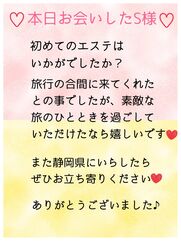 ♡本日お会いしたS様♡
初めてのエステは
いかがでしたか？
旅行の合間に来てくれた
との事でしたが、素敵な
旅のひとときを過ごして
いただけたなら嬉しいです♥
また静岡県にいらしたら
ぜひお立ち寄りください♥
ありがとうございました♪